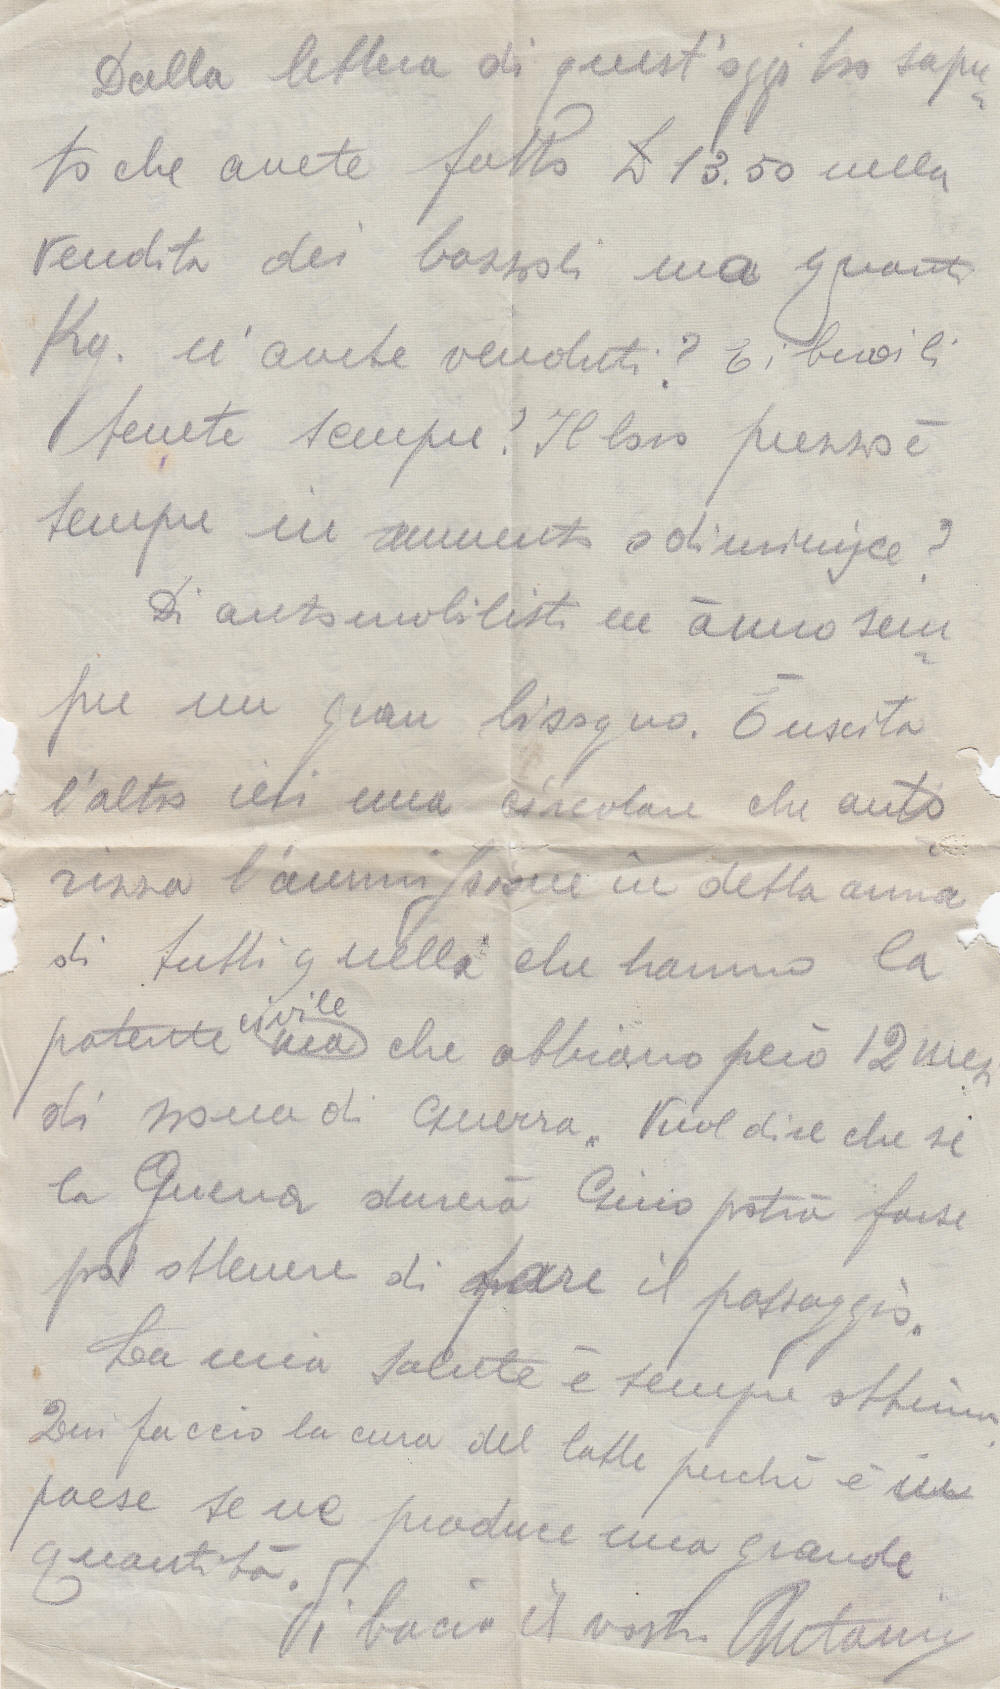 Dalla lettera di quest'oggi ho sapu
to che avete fatto £ 13.50 nella
vendita dei bozzoli ma quanti
Kg. n'avete venduti? E i buoi li
tenete sempre? Il loro prezzo è
sempre in aumento o diminuisce?
Di automobilisti ne ànno sem
pre un gran bisogno. È uscita
l'altro ieri una circolare che auto
rizza l'ammissione in detta arma
di tutti quelli che hanno la
patente civile ma che abbiano però 12 mesi
di zona di Guerra. Vuol dire che se
la Guerra durerà Gino potrà forse
poi ottenere di fare il passaggio.
La mia salute è sempre ottima
Qui faccio la cura del latte perchè è in
paese se ne produce una grande
quantità.
Vi bacio il vostro Antonio